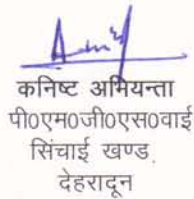 कनिष्ट अभियन्ता
पी0एम0जी0एस0वाई
सिंचाई खण्ड
देहरादून